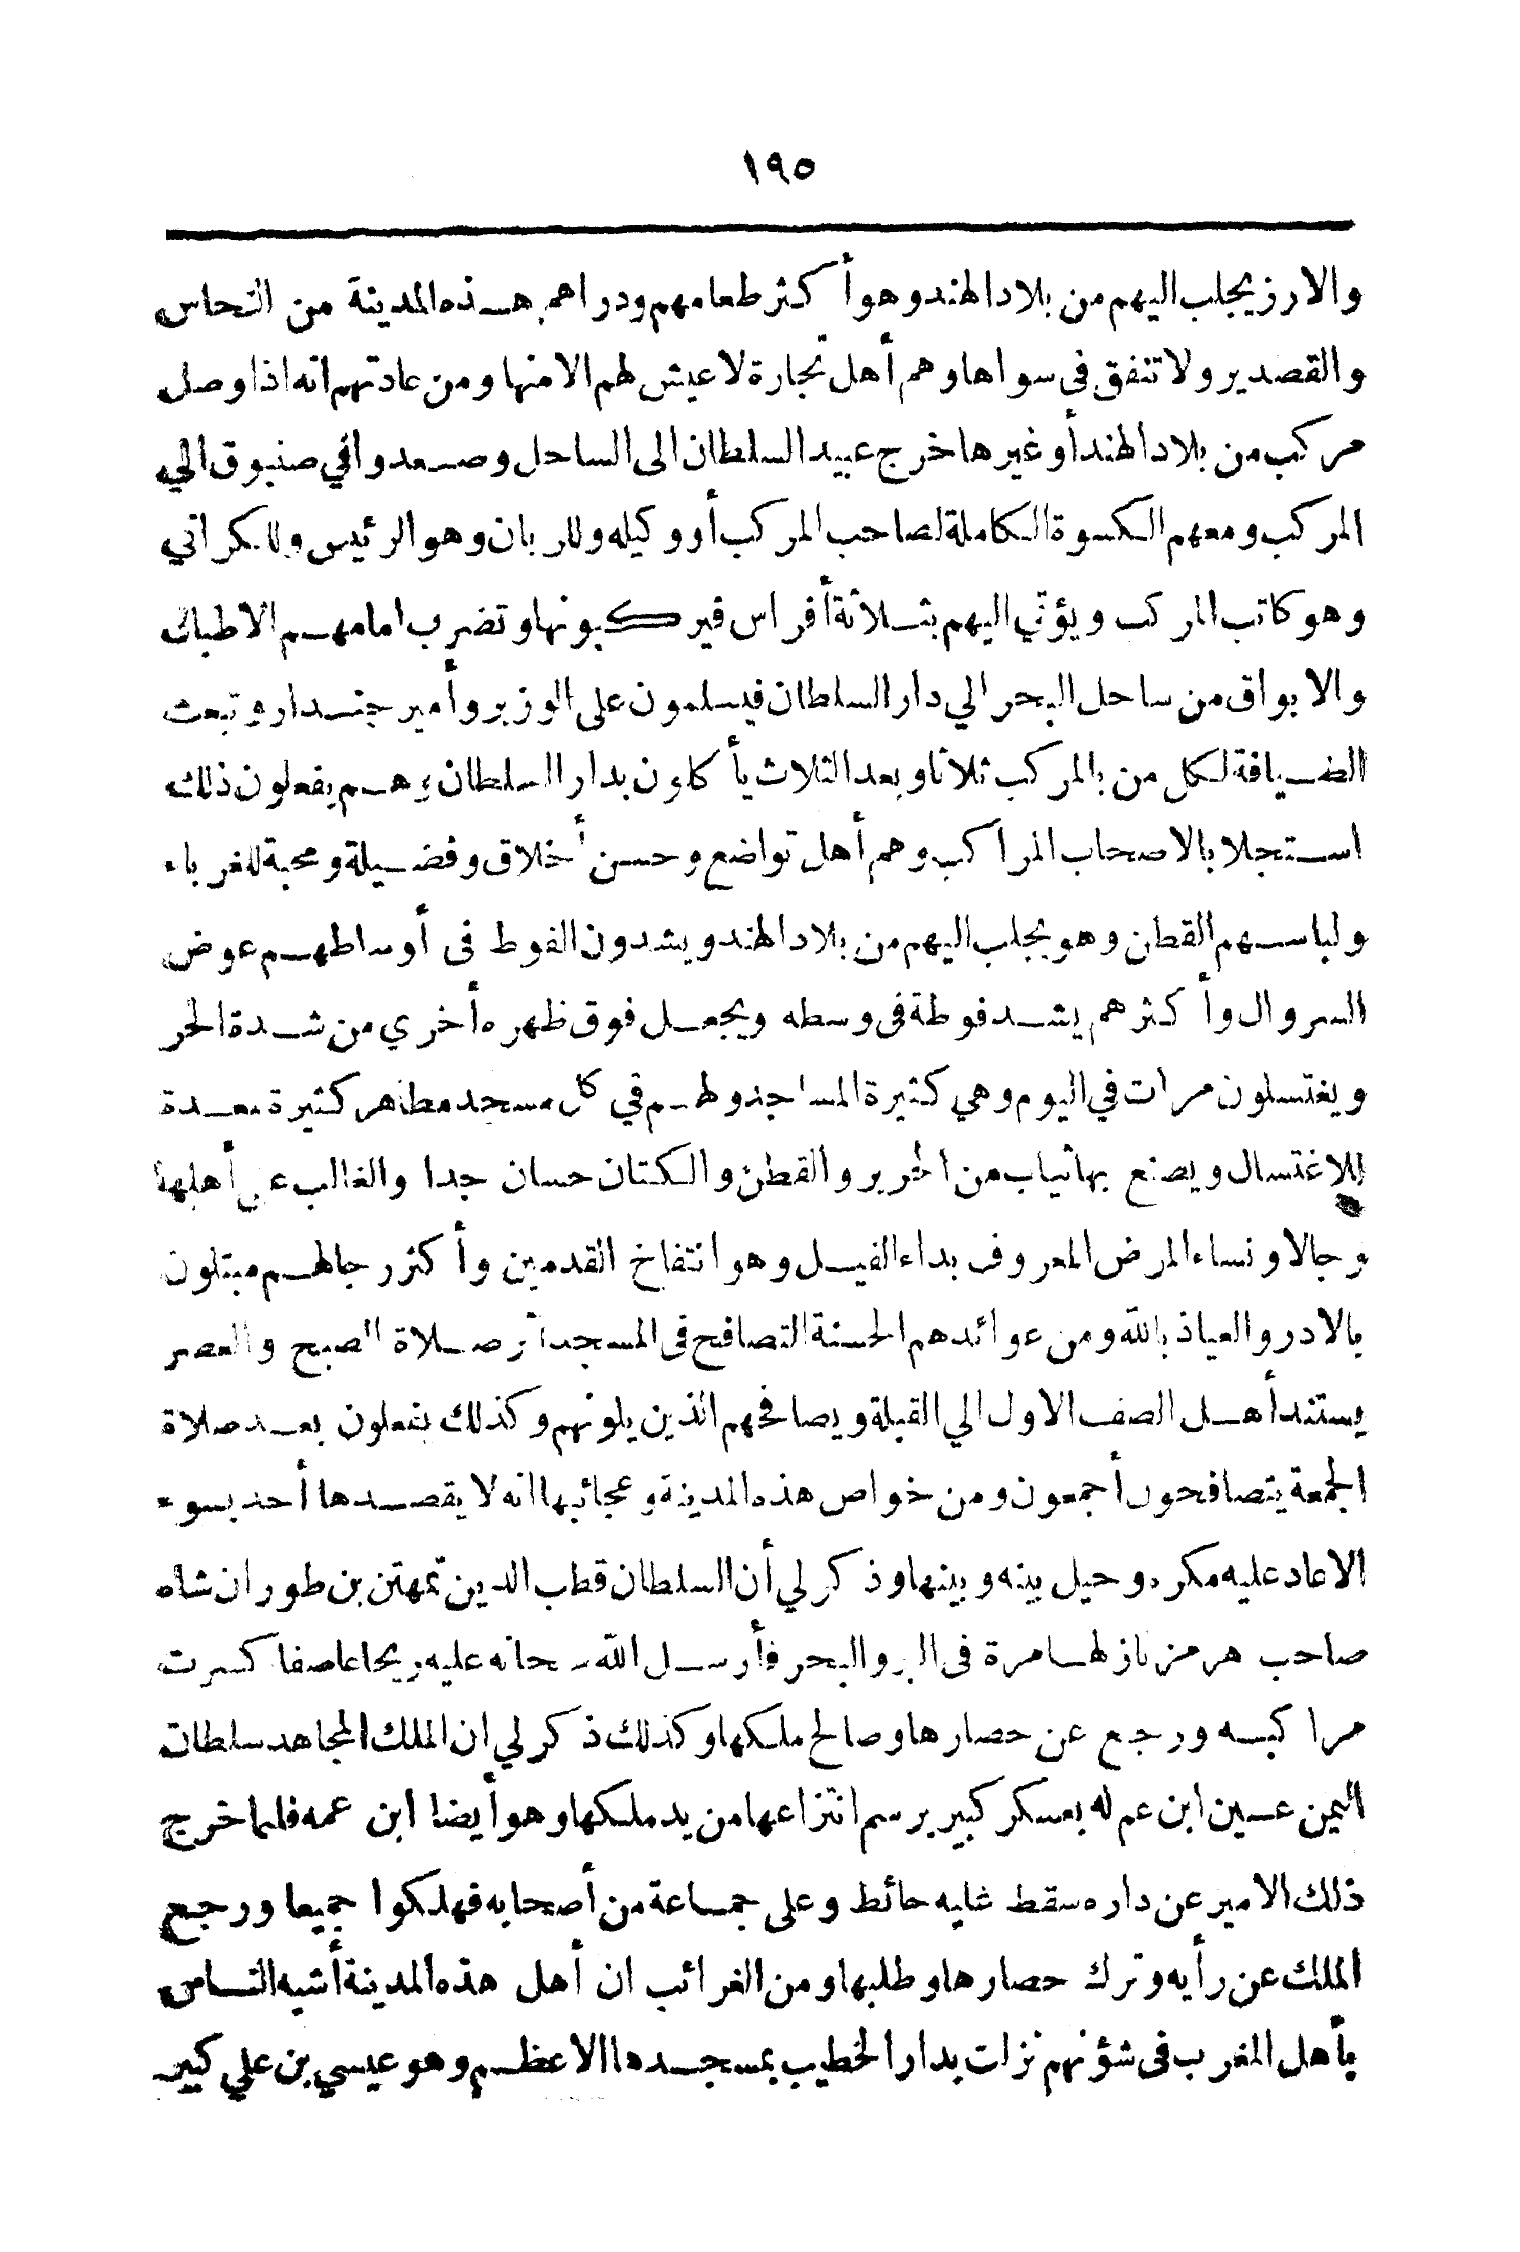 ١٩٥
والارز يجلب اليهم من بلاد الهند وهو أكثر طعامهم ودراهم هذه المدينة من النحاس
والقصدير ولا تنفق في سواها وهم أهل تجارة لا عيش لهم الا منها ومن عادتهم انه اذا وصل
مركب من بلاد الهند أو غيرها خرج عبيد السلطان الى الساحل وصعدوا في صنبوق الي
المركب ومعهم الكسوة الكاملة لصاحب المركب أو وكيله وللربان وهو الرئيس وللكراني
وهو كاتب المركب ويؤتي اليهم بثلاثة أفراس فيركبونها وتضرب امامهم الاطبال
والابواق من ساحل البحر الي دار السلطان فيسلمون على الوزير وأمير جندار وتبعث
الضيافة لكل من بالمركب ثلاثا وبعد الثلاث يأكلون بدار السلطان وهم يفعلون ذلك
استجلابا لاصحاب المراكب وهم أهل تواضع وحسن أخلاق وفضيلة ومحبة للغرباء
ولباسهم القطن وهو يجلب اليهم من بلاد الهند ويشدون الفوط في أوساطهم عوض
السروال وأكثرهم يشد فوطة في وسطه ويجعل فوق ظهره أخري من شدة الحر
ويغتسلون مرات في اليوم وهي كثيرة المساجد ولهم في كل مسجد مطاهر كثيرة معدة
للاغتسال ويصنع بها ثياب من الحرير والقطن والكتان حسان جدا والغالب على أهلها
رجالا ونساء المرض المعروف بداء الفيل وهو انتفاخ القدمين وأكثر رجالهم مبتلون
بالادر والعياذ بالله ومن عوائدهم الحسنة التصافح في المسجد اثر صلاة الصبح والعصر
يستند أهل الصف الاول الي القبلة ويصافحهم الذين يلونهم وكذلك يفعلون بعد صلاة
الجمعة يتصافحون أجمعون ومن خواص هذه المدينة وعجائبها انه لا يقصدها أحد بسوء
الا عاد عليه مكره وحيل بينه وبينها وذكر لي أن السلطان قطب الدين تمهتن بن طوران شاه
صاحب هرمز نازلها مرة في البر والبحر فأرسل الله سبحانه عليه ريحا عاصفا كسرت
مراكبه ورجع عن حصارها وصالح ملكها وكذلك ذكر لي ان الملك المجاهد سلطان
اليمن عين ابن عم له بعسكر كبير برسم انتزاعها من يد ملكها وهو أيضا ابن عمه فلما خرج
ذلك الامير عن داره سقط عليه حائط وعلى جماعة من أصحابه فهلكوا جميعا ورجع
الملك عن رأيه وترك حصارها وطلبها ومن الغرائب ان أهل هذه المدينة أشبه الناس
بأهل المغرب في شؤنهم نزلت بدار الخطيب بمسجدها الاعظم وهو عيسي بن علي كبير